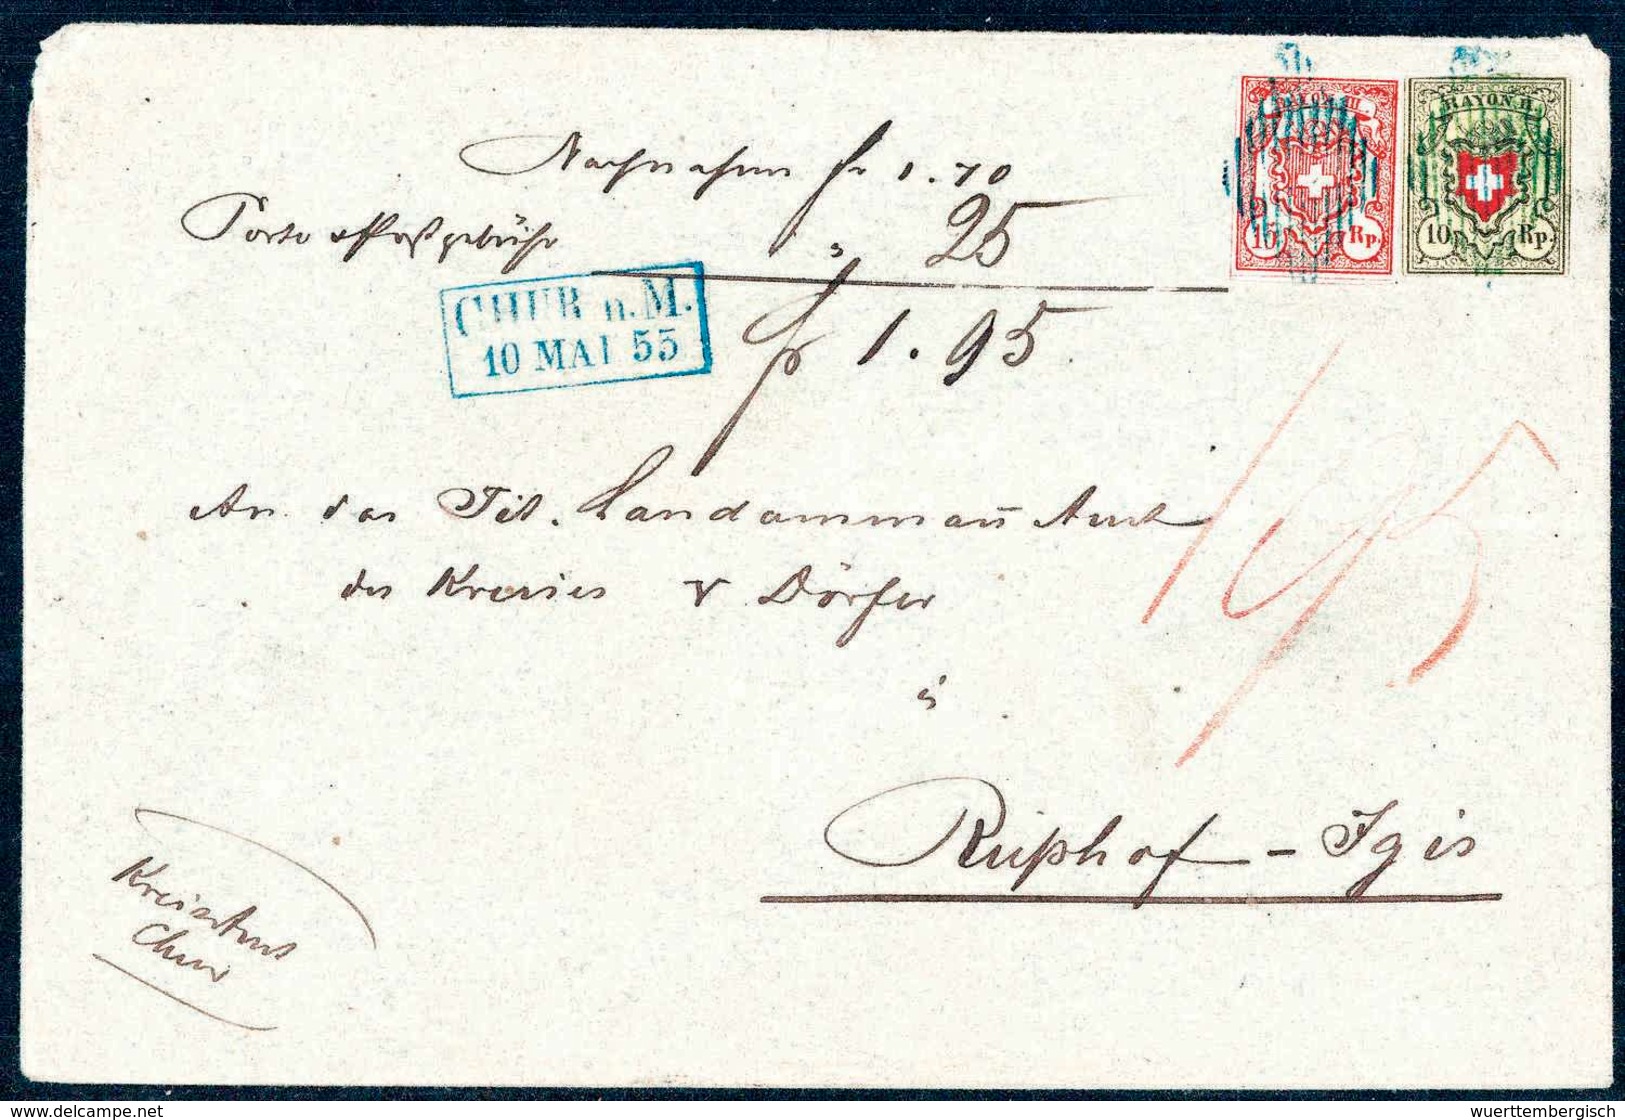 RAYON II.
10 Rp.
RAYON II.
10 Rp.
Nachnahme fr 1.70
Porto & Postgebühr " 25
fr 1.95
CHUR n.M.
10 MAI 55
An das Tit. Landammañ Amt
des Kreises V Dörfer
195
Rüfshof - Igis
Kreisamt
Chur
www.delcampe.net
wuerttembergisch